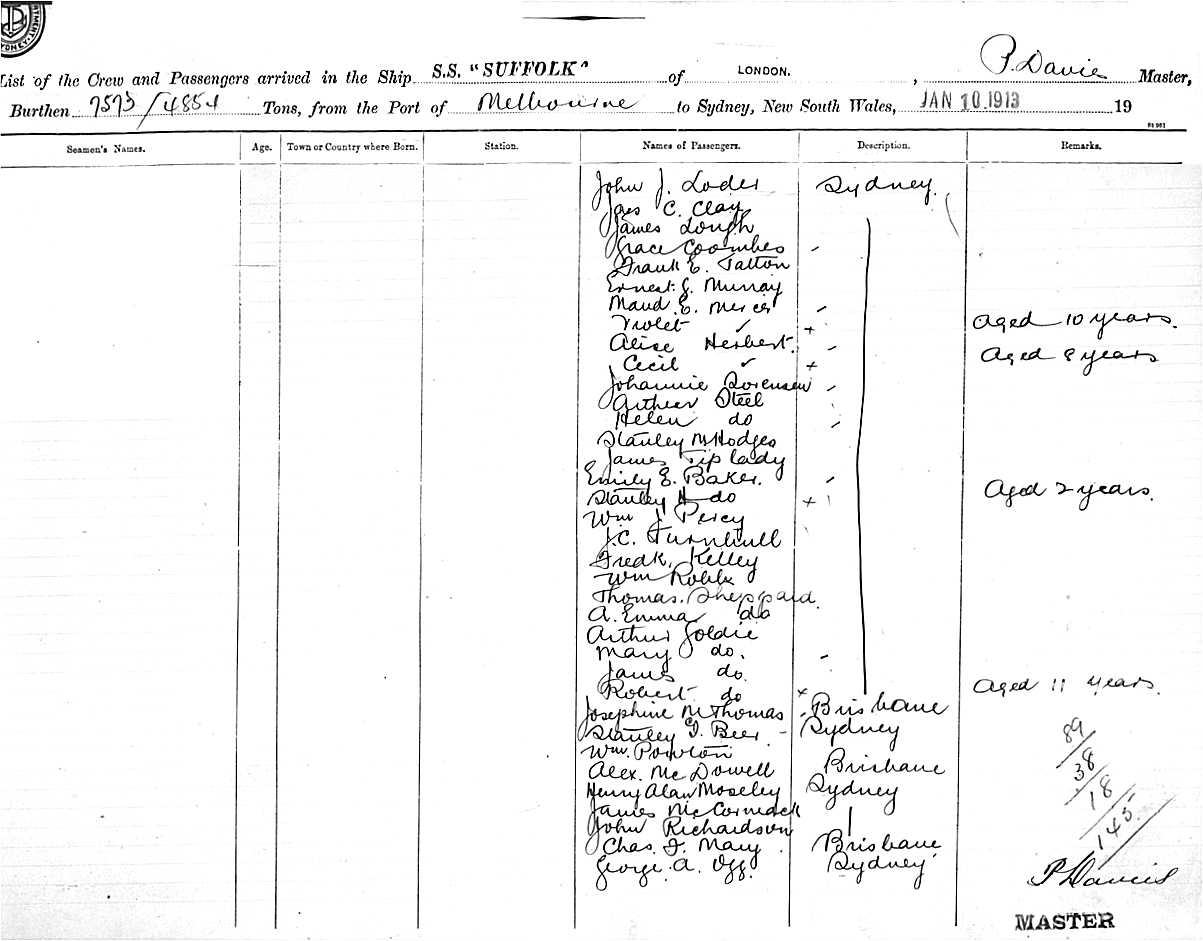 List of the Crew and Passengers arrived in the Ship S.S. "SUFFOLK" of LONDON. , P. Davies Master,
Burthen 7573/4854 Tons, from the Port of Melbourne to Sydney, New South Wales, JAN 10.1913 19
Seamen's Names. Age. Town or Country where Born. Station. Names of Passengers. Description. Remarks.
John J. Loder Sydney.
C. Clay
James Lough
Grace Coombes
Frank E. Tatton
Ernest G. Murray
Maud E. Mercer
Violet ✓ + Aged 10 years.
Alice Herbert.
Cecil ✓ + Aged 8 years
Johannie Sorensen
Arthur Steel
Helen do
Stanley M Hodges
James Tiplady
Emily E. Baker.
Stanley H do + Aged 2 years.
Wm J. Percy
J.C. Turnbull
Fredk. Kelley
Wm Robb
Thomas. Sheppard.
A. Emma do
Arthur Goldie
Mary do.
James do.
Robert do + Aged 11 years.
Josephine M Thomas Brisbane
Stanley G. Beer Sydney
Wm.
Alex. McDowell Brisbane
Henry Alan Moseley Sydney
James McCormack
John Richardson
Chas. F. Mary Brisbane
George. A. Ogg. Sydney
89
38
18
145.
P Davies
MASTER